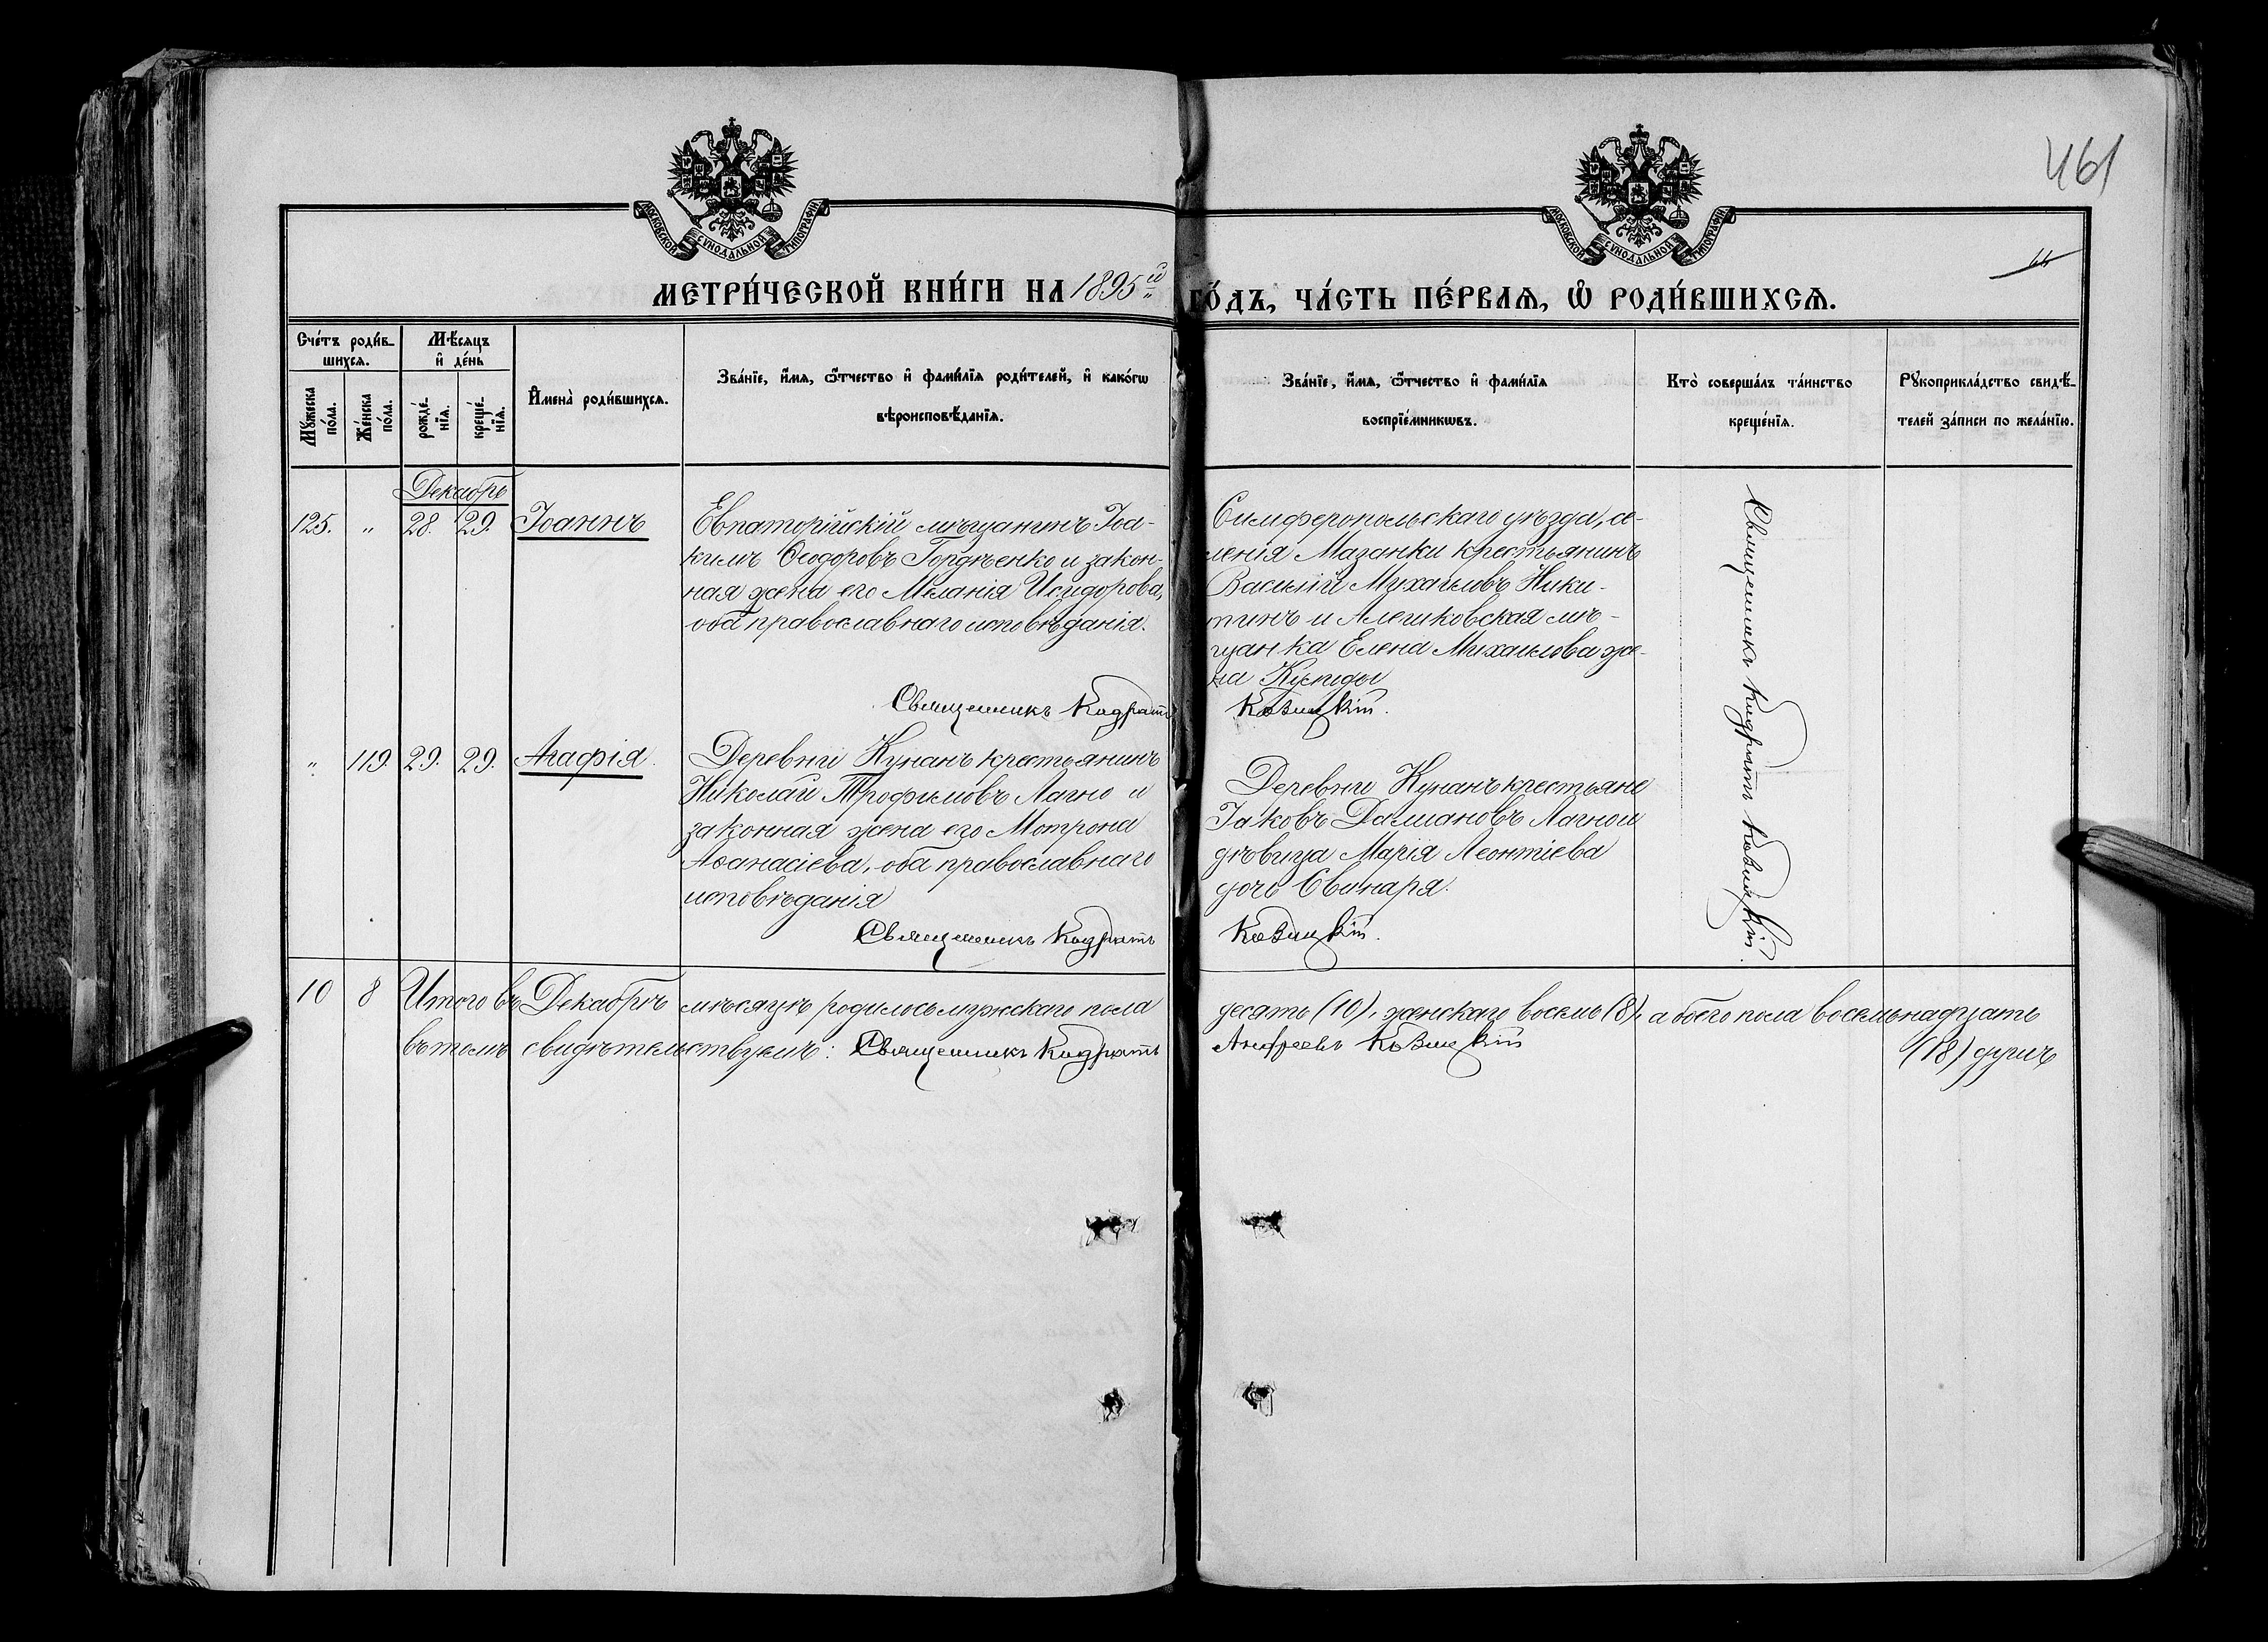 461
МОСКОВСКОЙ СУНОДАЛЬНОЙ ТИПОГРАФІИ
МОСКОВСКОЙ СУНОДАЛЬНОЙ ТИПОГРАФІИ
МЕТРИ́ЧЕСКОЙ КНИ́ГИ НА 1895й ГО́ДЪ, ЧА́СТЬ ПЕ́РВАѦ, Ѡ҆ РОДИ́ВШИХСѦ.
Сче́тъ роди́вшихсѧ.
Мꙋ́жеска по́ла.
Же́нска по́ла.
Мѣ́сѧцъ и҆ де́нь
рожде́нїѧ.
креще́нїѧ.
И҆мена̀ роди́вшихсѧ.
Зва́нїе, и҆́мѧ, ѻ҆́тчество и҆ фами́лїѧ роди́телей, и҆ како́гѡ
вѣроисповѣ́данїѧ.
Зва́нїе, и҆́мѧ, ѻ҆́тчество и҆ фами́лїѧ
воспрїе́мникѡвъ.
Кто̀ соверша́лъ та́инство
креще́нїѧ.
Рꙋкоприкла́дство свидѣ́-
телей за́писи по жела́нїю.
Декабрь
125. " 28. 29. Іоаннъ
Евпаторійскій мѣщанинъ Іоа-
кимъ Ѳеодоровъ Гордѣенко и закон-
ная жена его Меланія Исидорова,
оба православнаго исповѣданія.
Священникъ Кодратъ
Симферопольскаго уѣзда, се-
ленія Мазанки крестьянинъ
Василій Михаиловъ Ники-
тинъ и Алешковская мѣ-
щанка Елена Михаилова же-
на
Козицкій.
Священникъ Кодратъ Козицкій.
" 119. 29. 29. Агафія.
Деревни Кунанъ крестьянинъ
Николай Трофимовъ Лагно и
законная жена его Мотрона
Аѳанасіева, оба православнаго
исповѣданія
Священникъ Кодратъ
Деревни Кунанъ крестьяне
Іаковъ Даміановъ Лагно и
дѣвица Марія Леонтіева
дочь Свинаря.
Козицкій.
10 8 Итого въ Декабрѣ мѣсяцѣ родилось мужскаго пола десять (10), женскаго восемь (8), а обоего пола восемьнадцать
(18) душъ
въ томъ свидѣтельствуемъ: Священникъ Кодратъ Андреевъ Козицкій